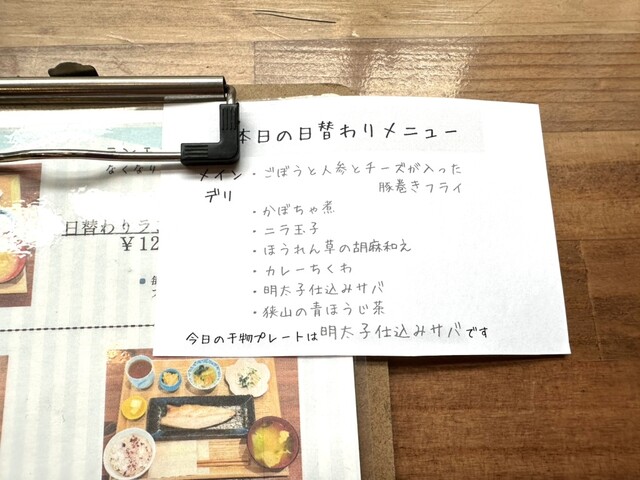 本日の日替わりメニュー
メイン・ごぼうと人参とチーズが入った
豚巻きフライ
デリ
・かぼちゃ煮
・ニラ玉子
・ほうれん草の胡麻和え
・カレーちくわ
・明太子仕込みサバ
・狭山の青ほうじ茶
今日の干物プレートは明太子仕込みサバです
なくなり
日替わりラン
¥12